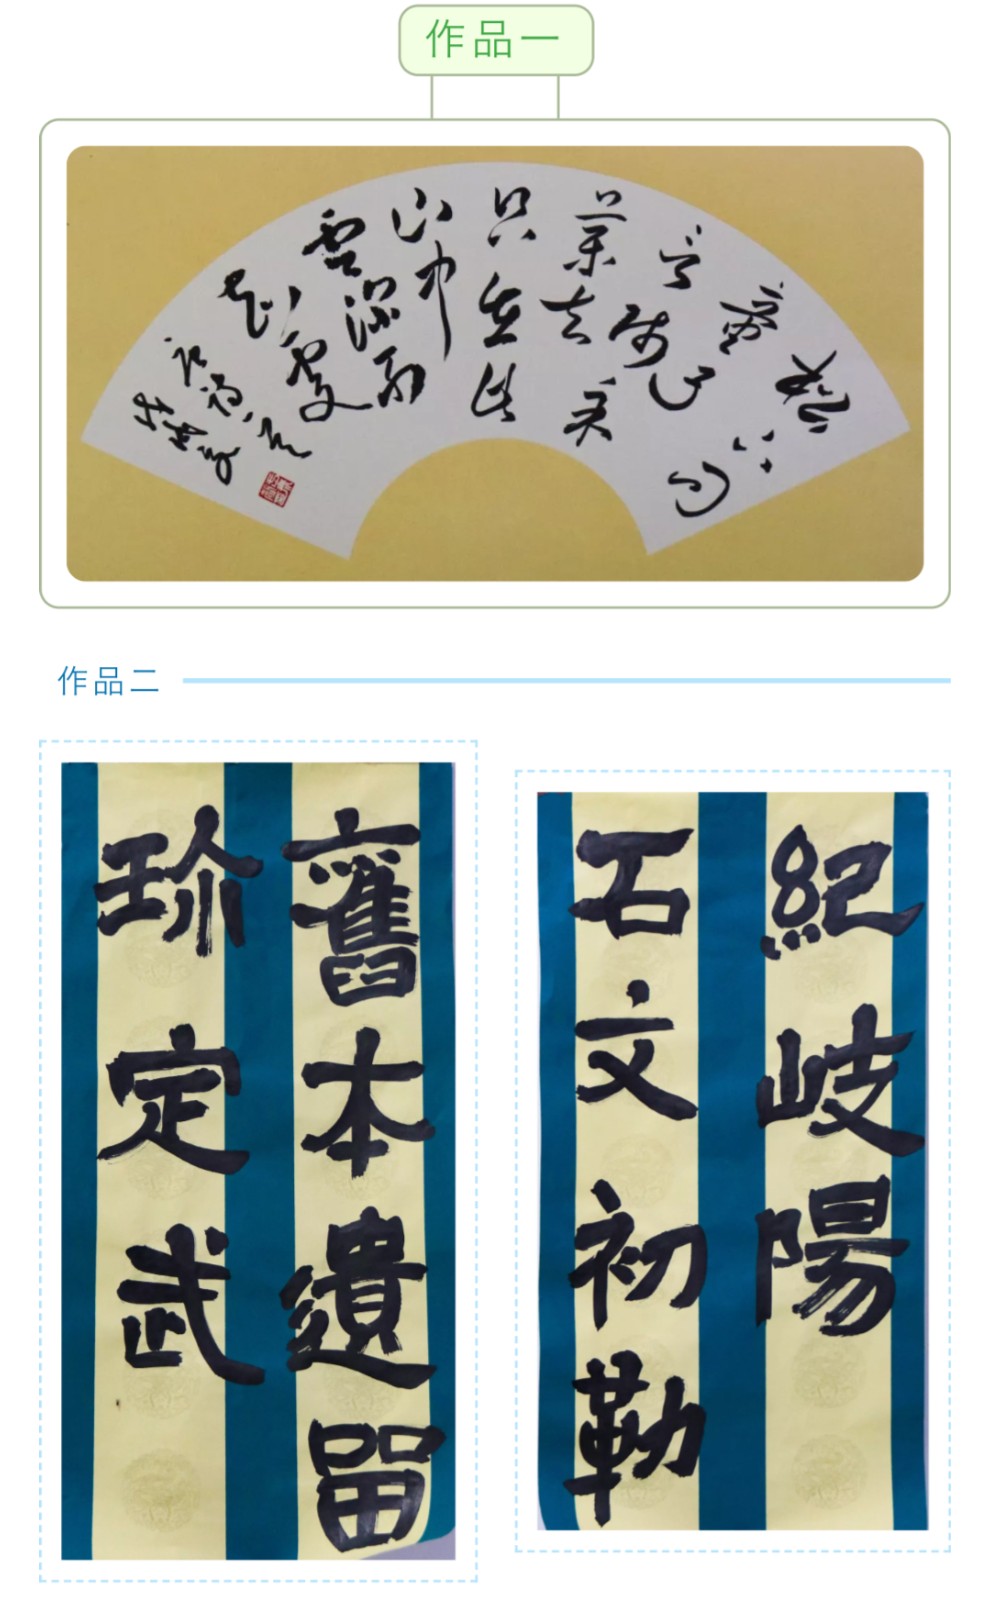 作品一
松下問
童子
言師采
藥去
只在此
山中
雲深不
知處
作品二
舊本遺留
珍定武
石文初勒
紀岐陽